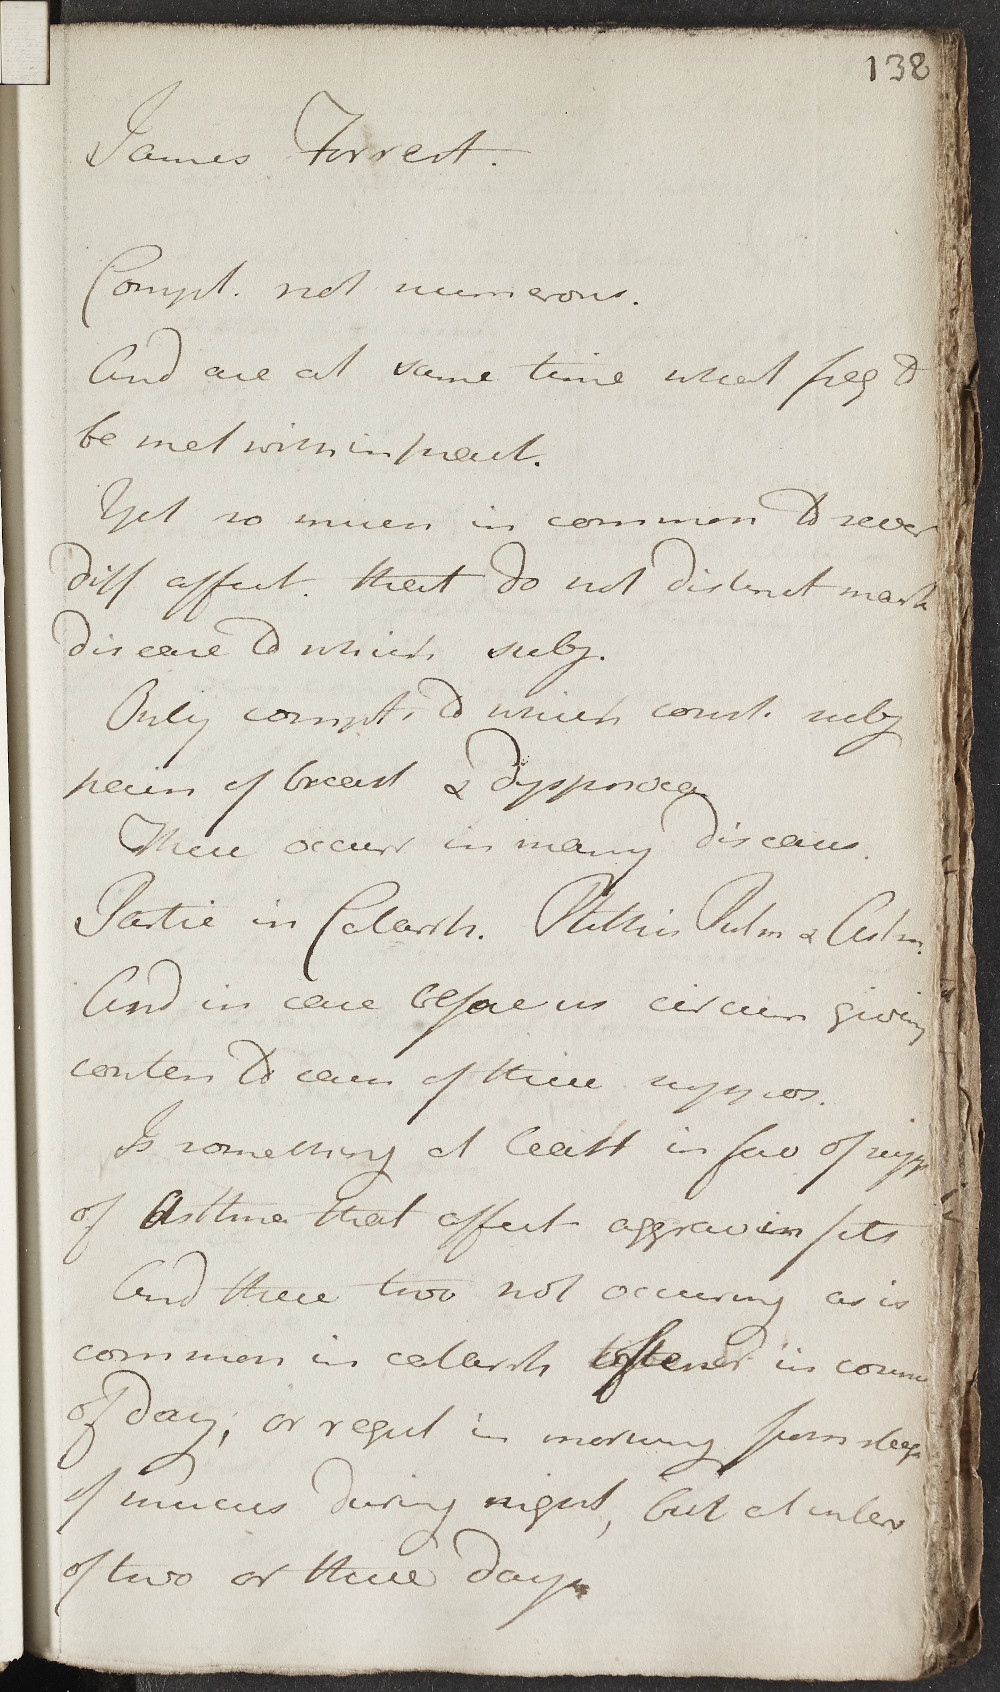 138
James Forrest.
Compt. not numerous.
And are at same time what freq to
be met with in pract.
Yet so much in common to sever
diff affect. that do not distinct mark
disease to which subj.
Only compts to which const. subj
pain of breast & dyspnoea
These occur in many diseases.
Partic in Catarrh. Phthisis Pulm & Asthm.
And in case before us circum giving
conten to each of these suppos.
Is something at least in fav of supp
of Asthma that affect aggrav in fits
And these two not occurring as is
common in catarrh oftener in course
of day; or regul in morning from
of mucus during night, but at interv
of two or three days